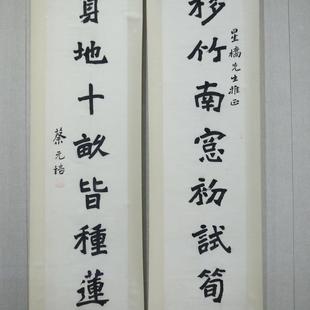 移竹南窓初試筍
星橋先生雅正
地十畝皆種蓮
蔡元培